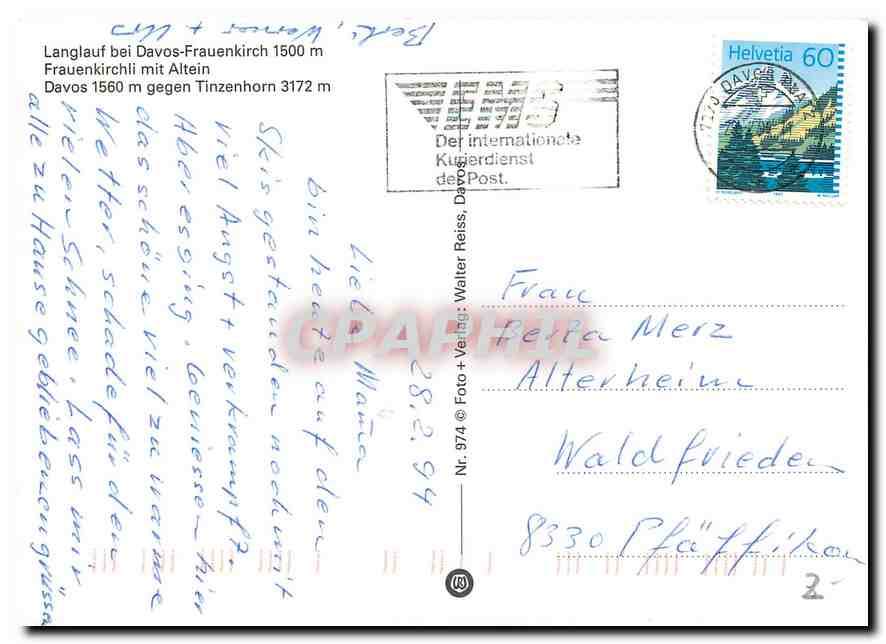 Langlauf bei Davos-Frauenkirch 1500 m
Frauenkirchli mit Altein
Davos 1560 m gegen Tinzenhorn 3172 m
EMS
Der internationale
Kurierdienst
der Post.
Helvetia 60
7270 DAVOS PLATZ
Nr. 974 © Foto + Verlag: Walter Reiss, Davos
CPAPHIL
28.2.94
Liebe Mama
bin heute auf den
Skis gestanden noch mit
viel Angst + verkrampft.
Aber es ging. Geniessen hier
das schöne viel zu warme
Wetter, schade für den
vielen Schnee. Lass mir
alle zu Hause gebliebenen grüssen
Werner + Urs
Frau
Berta Merz
Alterheim
Waldfrieden
8330 Pfäffikon
2-